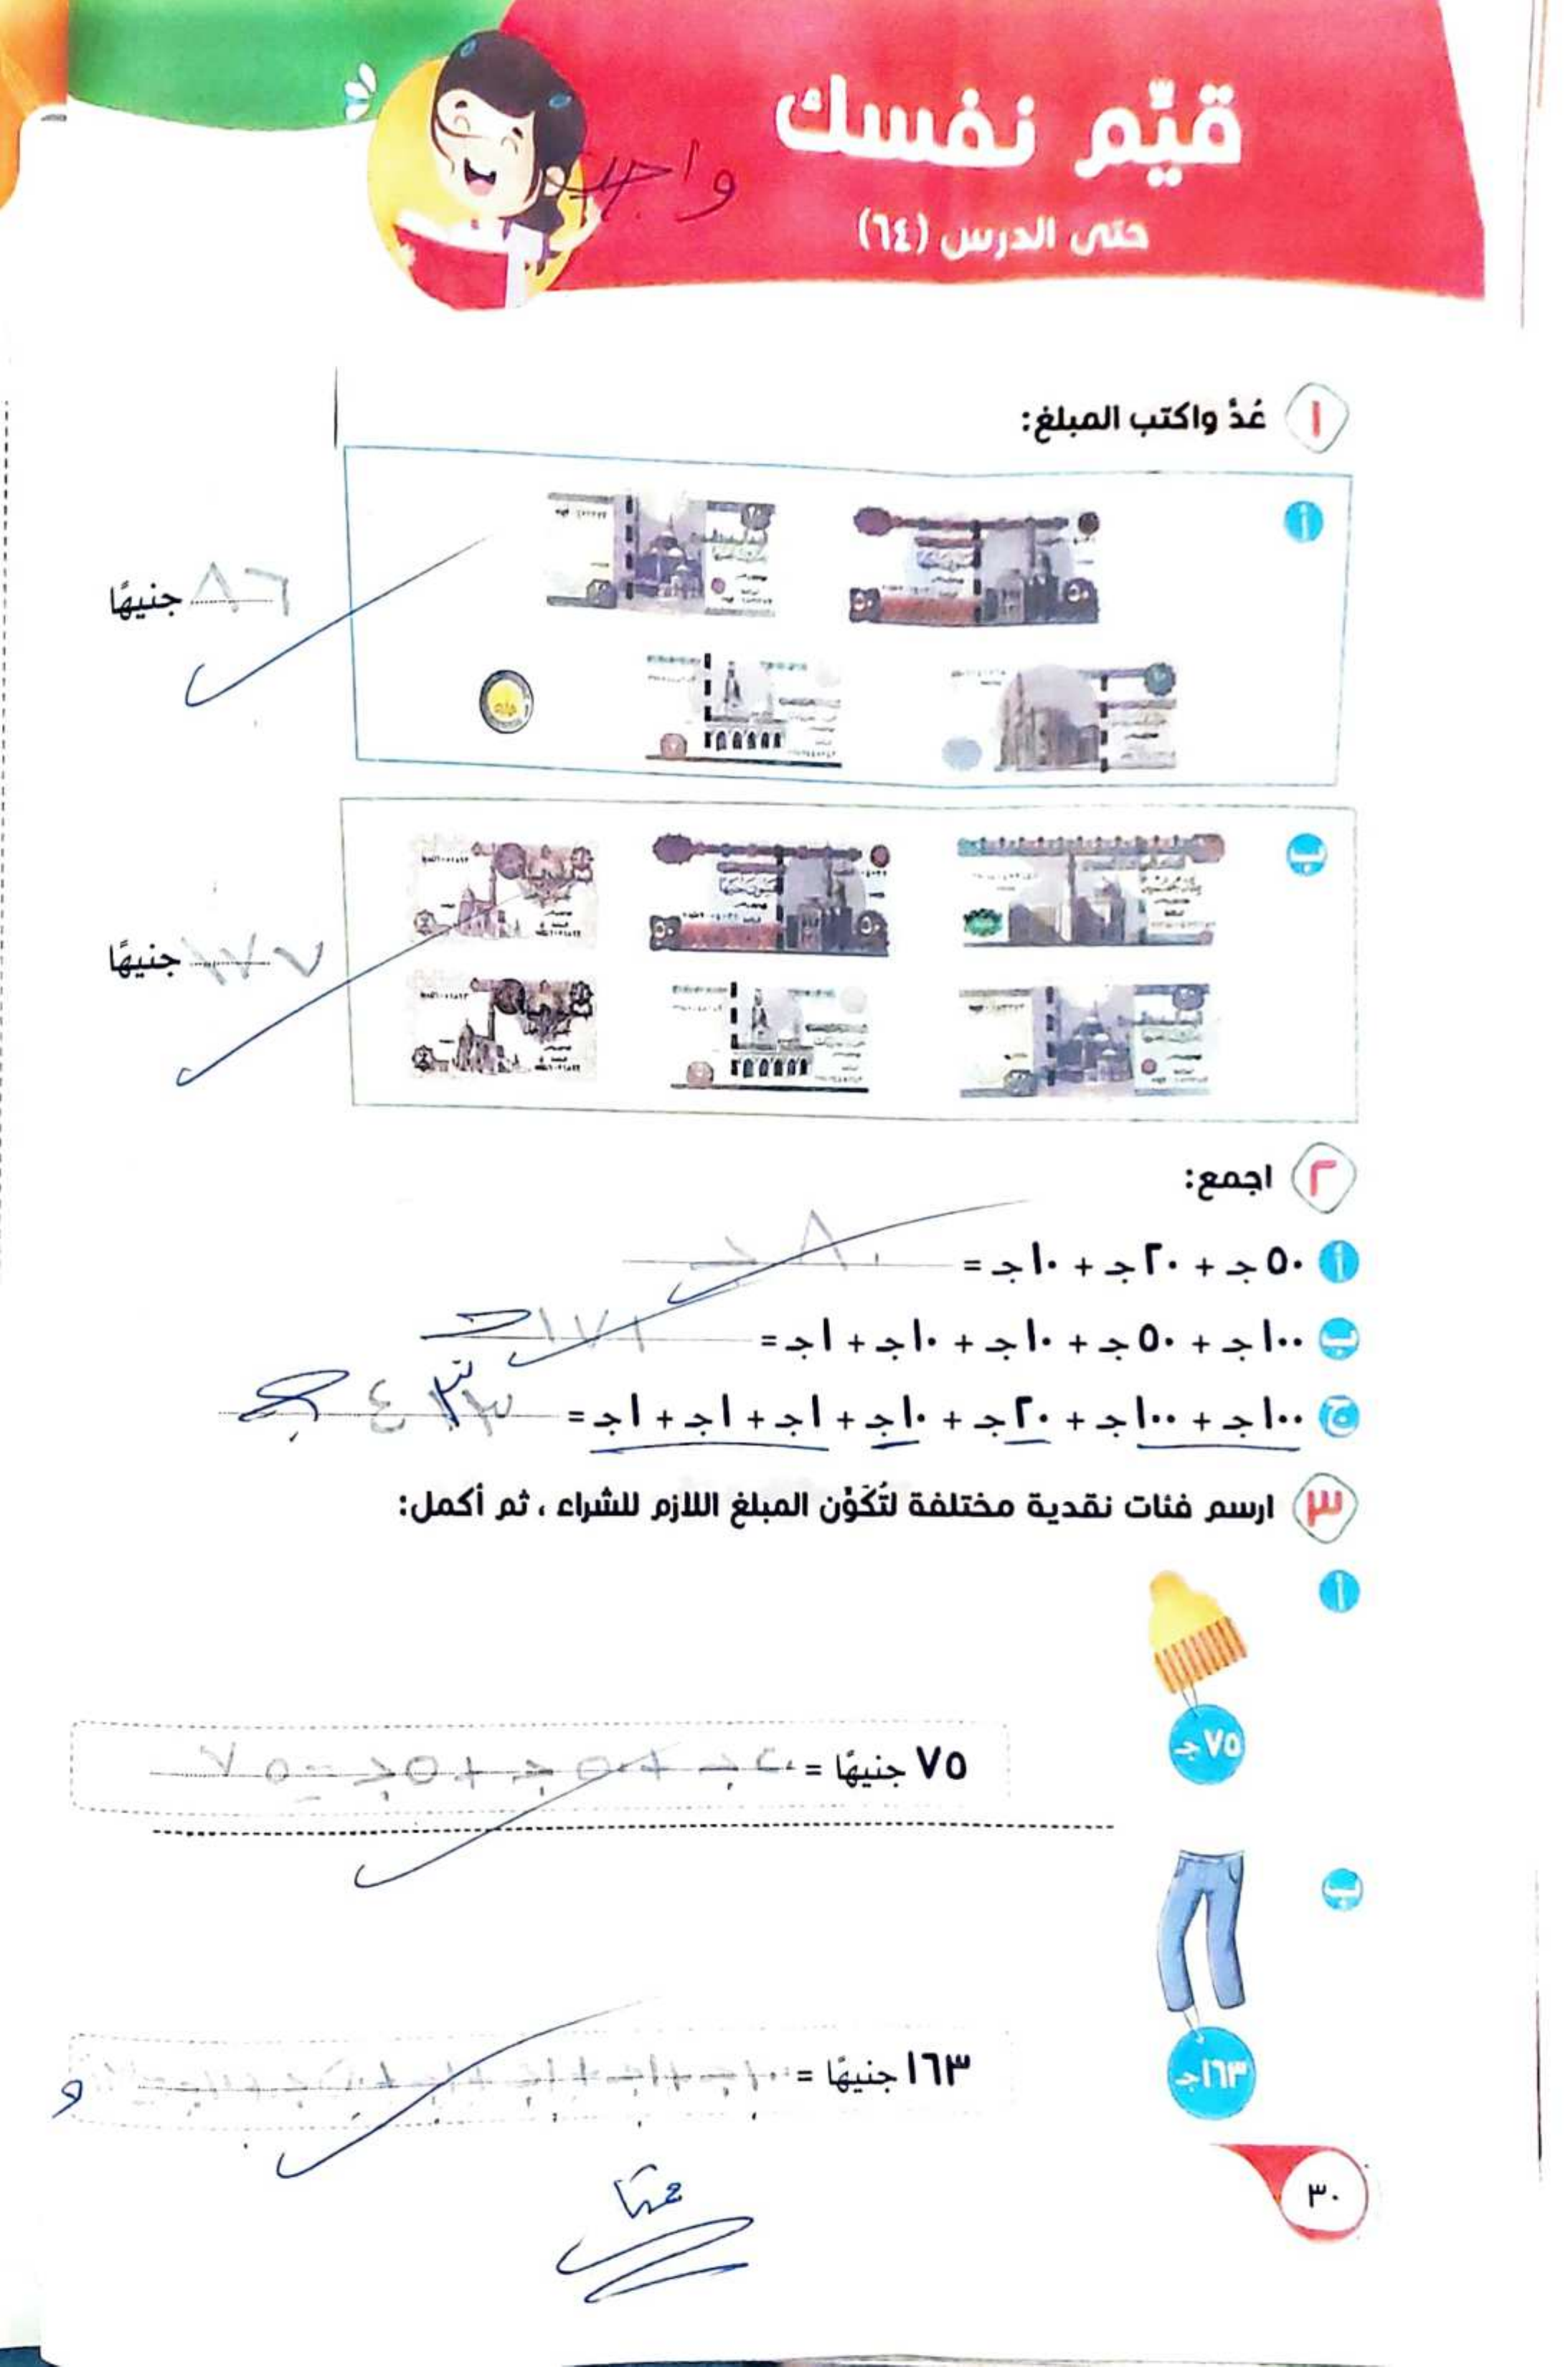 قيّم نفسك
واجب
حتى الدرس (٦٤)
١ عُدَّ واكتب المبلغ:
أ
٨٦ جنيهًا
ب
١٧٧ جنيهًا
٢ اجمع:
أ ٥٠ جـ + ٢٠ جـ + ١٠ جـ = ٨٠ جـ
ب ١٠٠ جـ + ٥٠ جـ + ١٠ جـ + ١٠ جـ + ١ جـ = ١٧١ جـ
ج ١٠٠ جـ + ١٠٠ جـ + ٢٠ جـ + ١٠ جـ + ١ جـ + ١ جـ + ١ جـ =
٣ ارسم فئات نقدية مختلفة لتُكَوِّن المبلغ اللازم للشراء ، ثم أكمل:
أ
٧٥ جـ
٧٥ جنيهًا = ٢٠ جـ + ٥٠ جـ + ٥ جـ = ٧٥
ب
١٦٣ جـ
١٦٣ جنيهًا =
٣٠